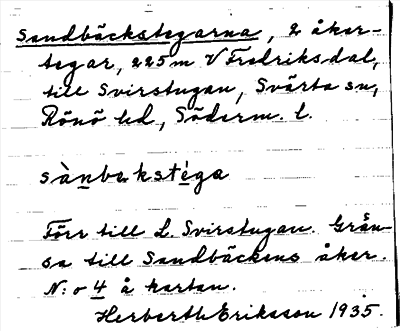 Sandbäckstegarna, 2 åker-
tegar, 225 m V Fredriksdal,
till Svirstugan, Svärta sn,
Rönö hd, Söderm. l.
sànbakstéga
Förr till L. Svirstugan. Grän-
sa till Sandbäckens åker.
N:o 4 å kartan.
Herberth Eriksson 1935.